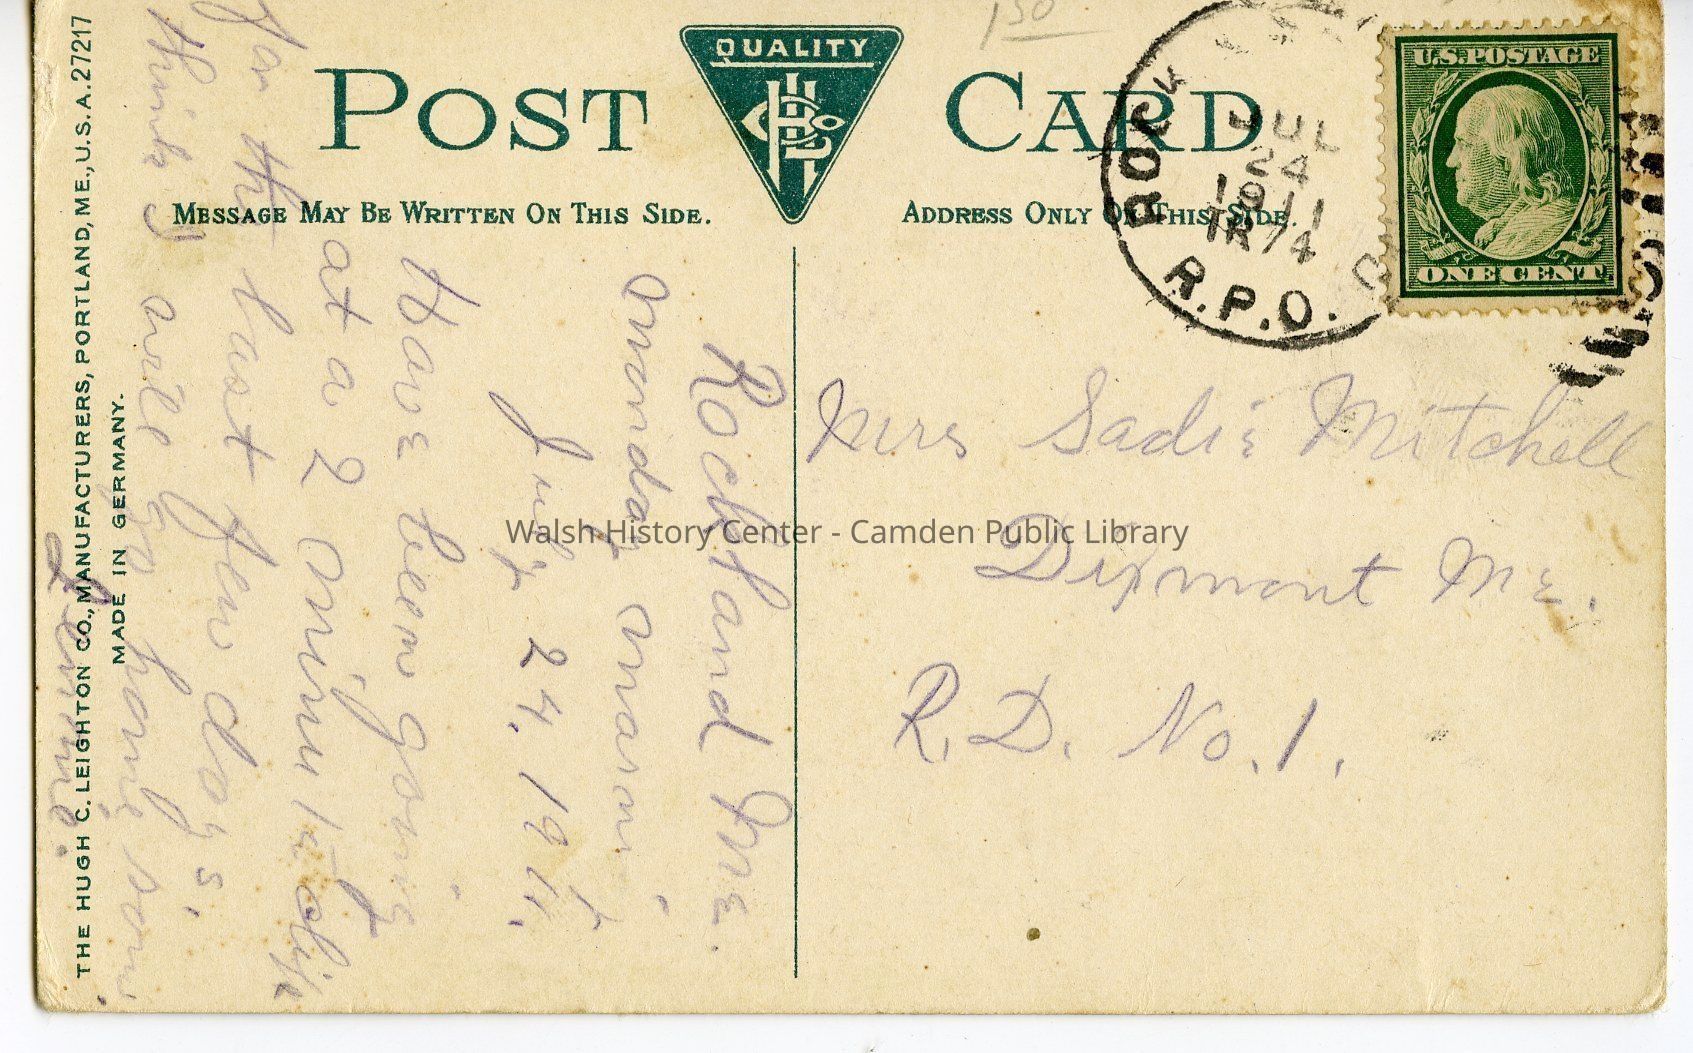 150
QUALITY
POST CARD
MESSAGE MAY BE WRITTEN ON THIS SIDE.
ADDRESS ONLY ON THIS SIDE.
ROCK
JUL
24
1911
TR 74
R.P.O.
U.S. POSTAGE
ONE CENT
THE HUGH C. LEIGHTON CO., MANUFACTURERS, PORTLAND, ME., U.S.A. 27217
MADE IN GERMANY.
Rockland Me.
Monday morning
July 24, 1911.
Have been going
at a 2 minute clip
for the last few days.
think I will go home soon.
Mrs Sadie Mitchell
Dixmont Me.
R.D. No. 1.
Walsh History Center - Camden Public Library